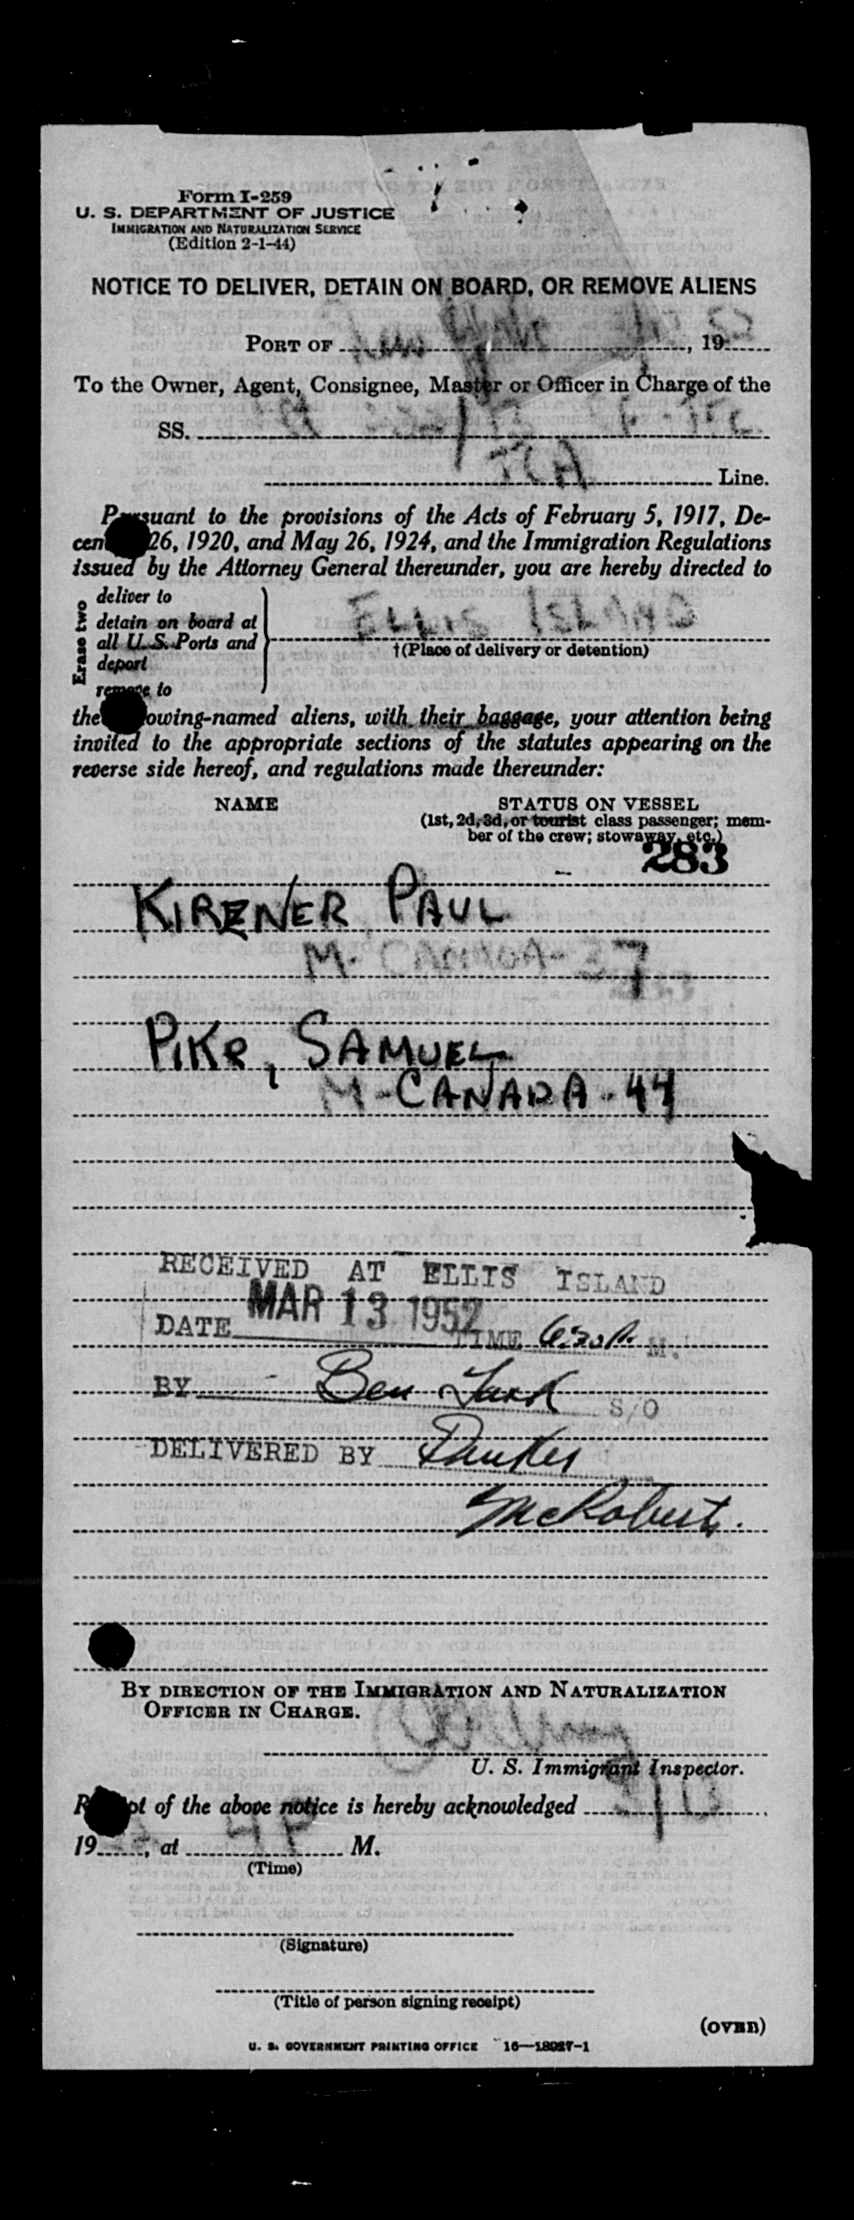 Form I-259
U. S. DEPARTMENT OF JUSTICE
IMMIGRATION AND NATURALIZATION SERVICE
(Edition 2-1-44)
NOTICE TO DELIVER, DETAIN ON BOARD, OR REMOVE ALIENS
PORT OF New York, 1952
To the Owner, Agent, Consignee, Master or Officer in Charge of the
SS.
TCA Line.
Pursuant to the provisions of the Acts of February 5, 1917, De-
cem 26, 1920, and May 26, 1924, and the Immigration Regulations
issued by the Attorney General thereunder, you are hereby directed to
Erase two
deliver to
detain on board at
all U.S. Ports and
deport
remove to
ELLIS ISLAND
†(Place of delivery or detention)
the owing-named aliens, with their baggage, your attention being
invited to the appropriate sections of the statutes appearing on the
reverse side hereof, and regulations made thereunder:
NAME STATUS ON VESSEL
(1st, 2d, 3d, or tourist class passenger; mem-
ber of the crew; stowaway, etc.)
283
KIRZNER PAUL
M - CANADA - 37
PIKE, SAMUEL
M - CANADA - 44
RECEIVED AT ELLIS ISLAND
DATE MAR 13 1952 TIME M.
BY Ben S/O
DELIVERED BY
McRoberts.
BY DIRECTION OF THE IMMIGRATION AND NATURALIZATION
OFFICER IN CHARGE.
U. S. Immigrant Inspector.
Receipt of the above notice is hereby acknowledged 3/13
19, at 4 P M.
(Time)
(Signature)
(Title of person signing receipt)
(OVER)
U. S. GOVERNMENT PRINTING OFFICE 16—18027-1